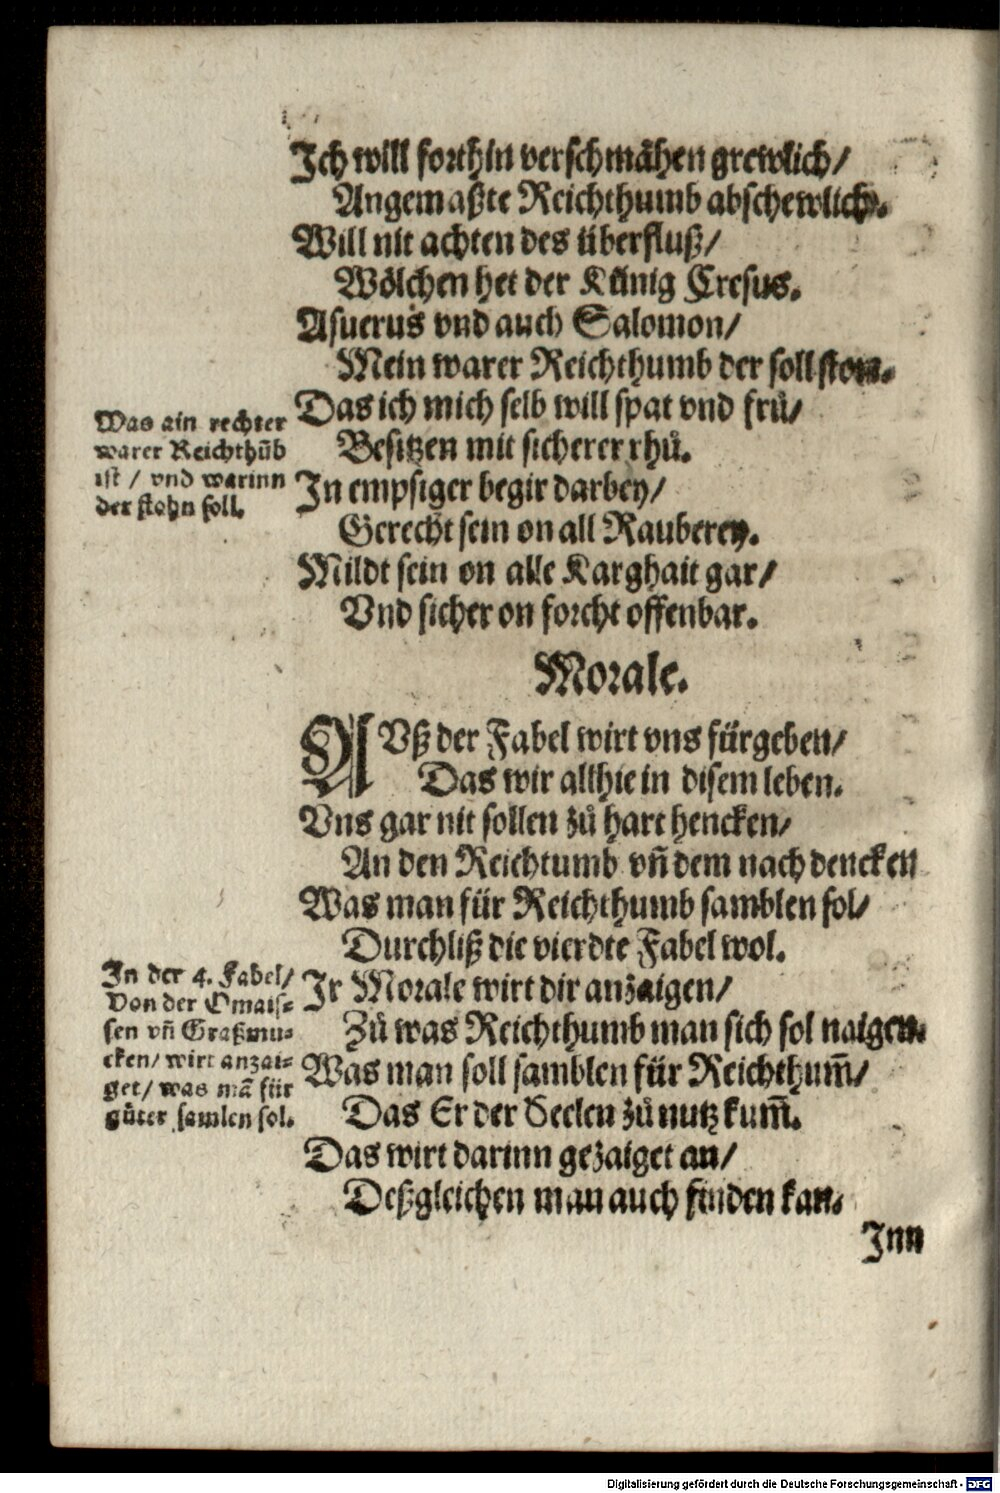 Ich will forthin verschmähen grewlich/
Angemaßte Reichthumb abschewlich.
Will nit achten des überfluß/
Wölchen het der Künig Cresus.
Asuerus vnd auch Salomon/
Mein warer Reichthumb der soll ston.
Das ich mich selb will spat vnd frü/
Besitzen mit sicherer rhů.
In empsiger begir darbey/
Gerecht sein on all Rauberey.
Mildt sein on alle Karghait gar/
Vnd sicher on forcht offenbar.
Was ain rechter
warer Reichthũb
ist / vnd warinn
der stehn soll.
Morale.
AVß der Fabel wirt vns fürgeben/
Das wir allhie in disem leben.
Vns gar nit sollen zů hart hencken/
An den Reichtumb vñ dem nach dencken
Was man für Reichthumb samblen sol/
Durchliß die vierdte Fabel wol.
Ir Morale wirt dir anzaigen/
Zů was Reichthumb man sich sol naigen.
Was man soll samblen für Reichthum̃/
Das Er der Seelen zů nutz kum̃.
Das wirt darinn gezaiget an/
Deßgleichen man auch finden kan.
In der 4. Fabel/
Von der Omais-
sen vñ Graßmu-
cken/ wirt anzai-
get/ was mã für
gůter samlen sol.
Inn
Digitalisierung gefördert durch die Deutsche Forschungsgemeinschaft - DFG